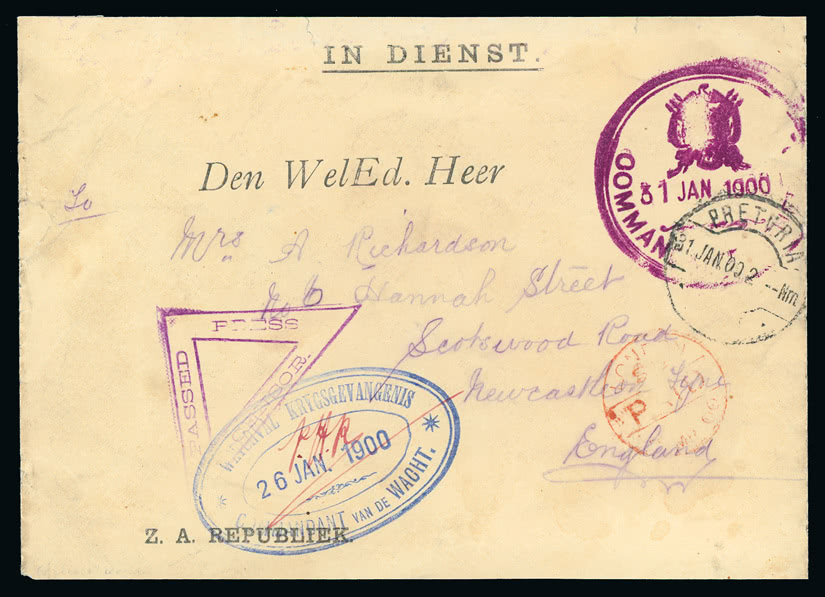 IN DIENST.
Den WelEd. Heer
To
Mrs A Richardson
No 6 Hannah Street
Scotswood Road
Newcastle on Tyne
England
COMMAN
31 JAN 1900
PRETORIA
31 JAN.00 2 --Nm
PASSED
PRESS
CENSOR.
KRYGSGEVANGENIS
26 JAN. 1900
COMMANDANT VAN DE WACHT.
LONDON
P
00
Z. A. REPUBLIEK.